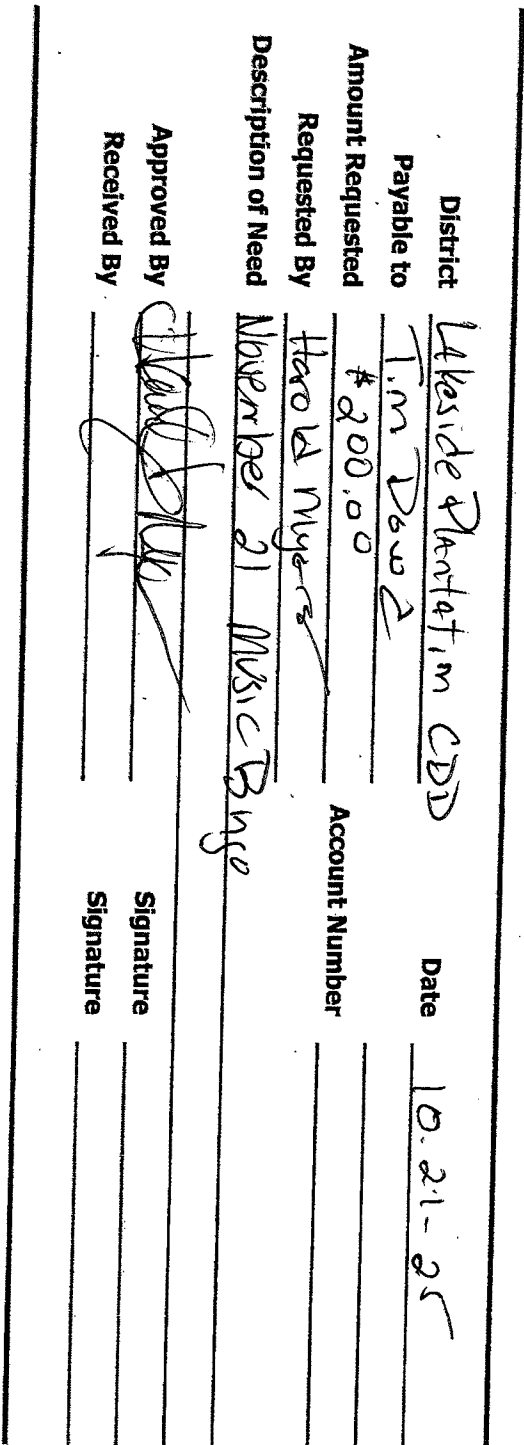 District Lakeside Plantation CDD Date 10-21-25
Payable to Tim Dowd
Amount Requested $200.00 Account Number
Requested By Harold Myers
Description of Need November 21 Music Bingo
Approved By Signature
Received By Signature